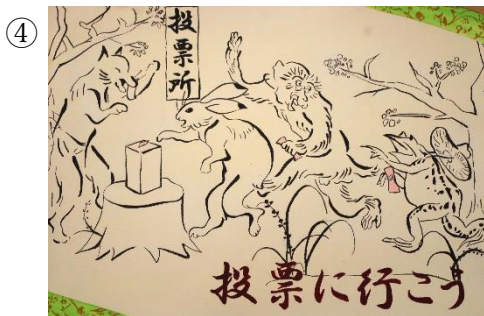 ④
投票所
投票に行こう